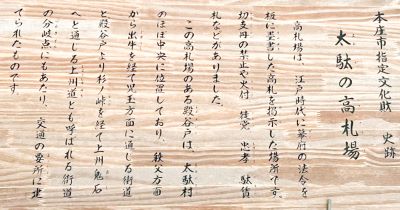 本庄市指定文化財　史跡
太駄の高札場
高札場は、江戸時代に幕府の法令を
板に墨書した高札を掲示した場所です。
切支丹の禁止や火付　徒党　忠孝　駄賃
札などがありました。
この高札場のある殿谷戸は、太駄村
のほぼ中央に位置しており、秩父方面
から出牛を経て児玉方面に通じる街道
と殿谷戸より杉ノ峠を経て上州鬼石
へと通じる上州道とも呼ばれる街道
の分岐点にもあたり、交通の要所に建
てられたものです。